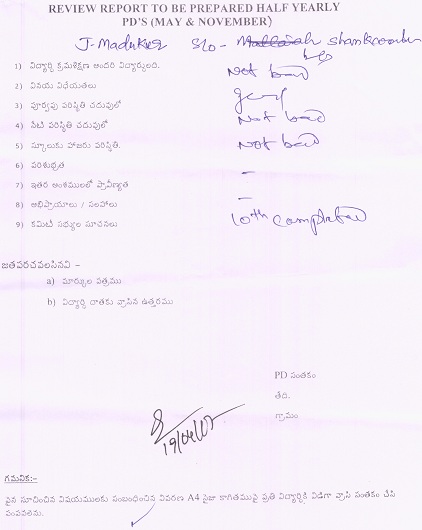 REVIEW REPORT TO BE PREPARED HALF YEARLY
PD'S (MAY & NOVEMBER)
J-Madukar S/o -
1) విద్యార్థి క్రమశిక్షణ అందరి విద్యార్థులది. Not bad
2) వినయ విధేయతలు good
3) పూర్వపు పరిస్థితి చదువులో Not bad
4) నేటి పరిస్థితి చదువులో Not bad
5) స్కూలుకు హాజరు పరిస్థితి.
6) పరిశుభ్రత -
7) ఇతర అంశములలో ప్రావీణ్యత -
8) అభిప్రాయాలు / సలహాలు
9) కమిటీ సభ్యుల సూచనలు 10th Completed
జతపరచవలసినవి :-
a) మార్కుల పత్రము
b) విద్యార్థి దాతకు వ్రాసిన ఉత్తరము
PD సంతకం
తేది.
గ్రామం
గమనిక:-
పైన సూచించిన విషయములకు సంబంధించిన వివరణ A4 సైజు కాగితముపై ప్రతి విద్యార్థికి విడిగా వ్రాసి సంతకం చేసి
పంపవలెను.